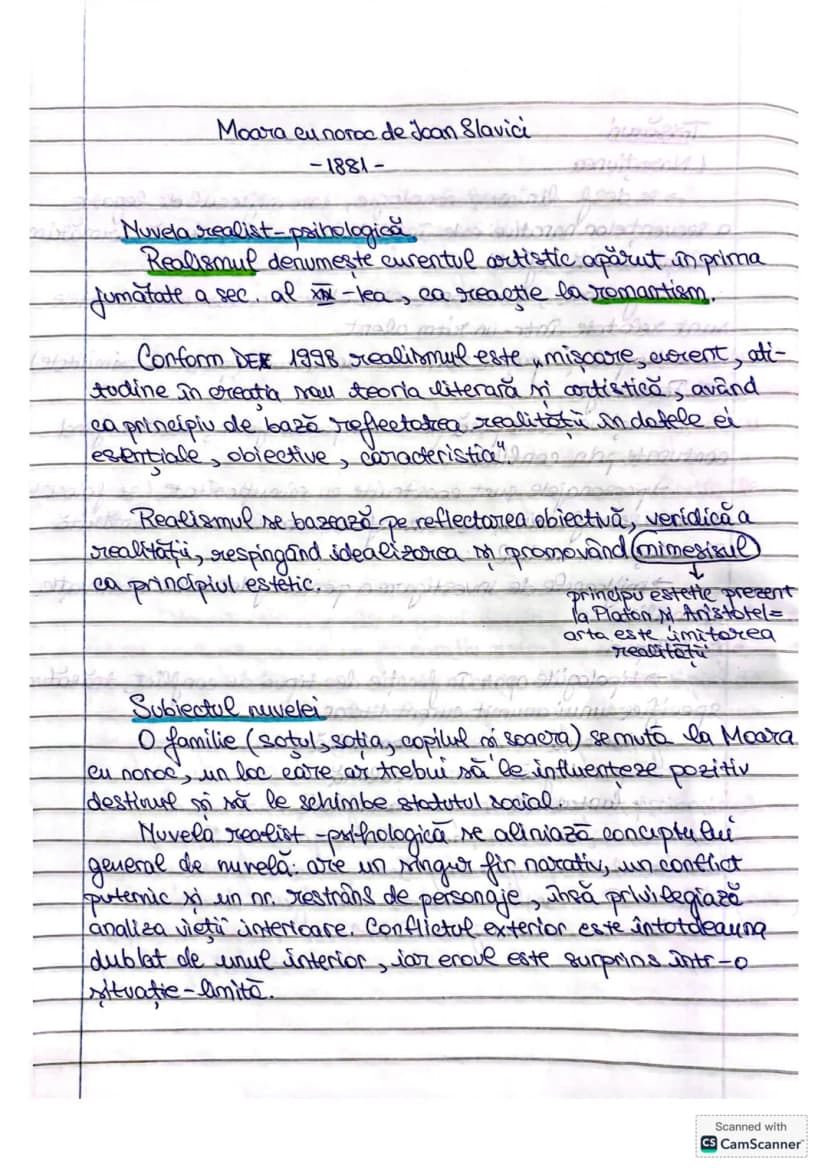 Moara cu noroc de Ioan Slavici
-1881-
Nuvela realist-psihologică
Realismul denumește curentul artistic apărut în prima
jumătate a sec. al XIX-lea, ca reacție la romantism.
Conform DEX 1998 realismul este „mișcare, curent, ati-
tudine în creația sau teoria literară și artistică, având
ca principiu de bază reflectarea realității în datele ei
esențiale, obiective, caracteristia".
Realismul se bazează pe reflectarea obiectivă, veridică a
realității, respingând idealizarea și promovând mimesisul
ca principiul estetic.
principiu estetic prezent
la Platon și Aristotel=
arta este imitarea
realității
Subiectul nuvelei
O familie (soțul, soția, copilul și soacra) se mută la Moara
cu noroc, un loc care ar trebui să le influențeze pozitiv
destinul și să le schimbe statutul social.
Nuvela realist-psihologică se aliniază conceptului
general de nuvelă: are un singur fir narativ, un conflict
puternic și un nr. restrâns de personaje, însă privilegiază
analiza vieții interioare. Conflictul exterior este întotdeauna
dublat de unul interior, iar eroul este surprins într-o
situație-limită.
Scanned with
CS CamScanner